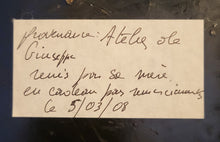 provenance: Atelier de
Giuseppe
remis par sa mère
en cadeau par remerciement
le 5/03/08